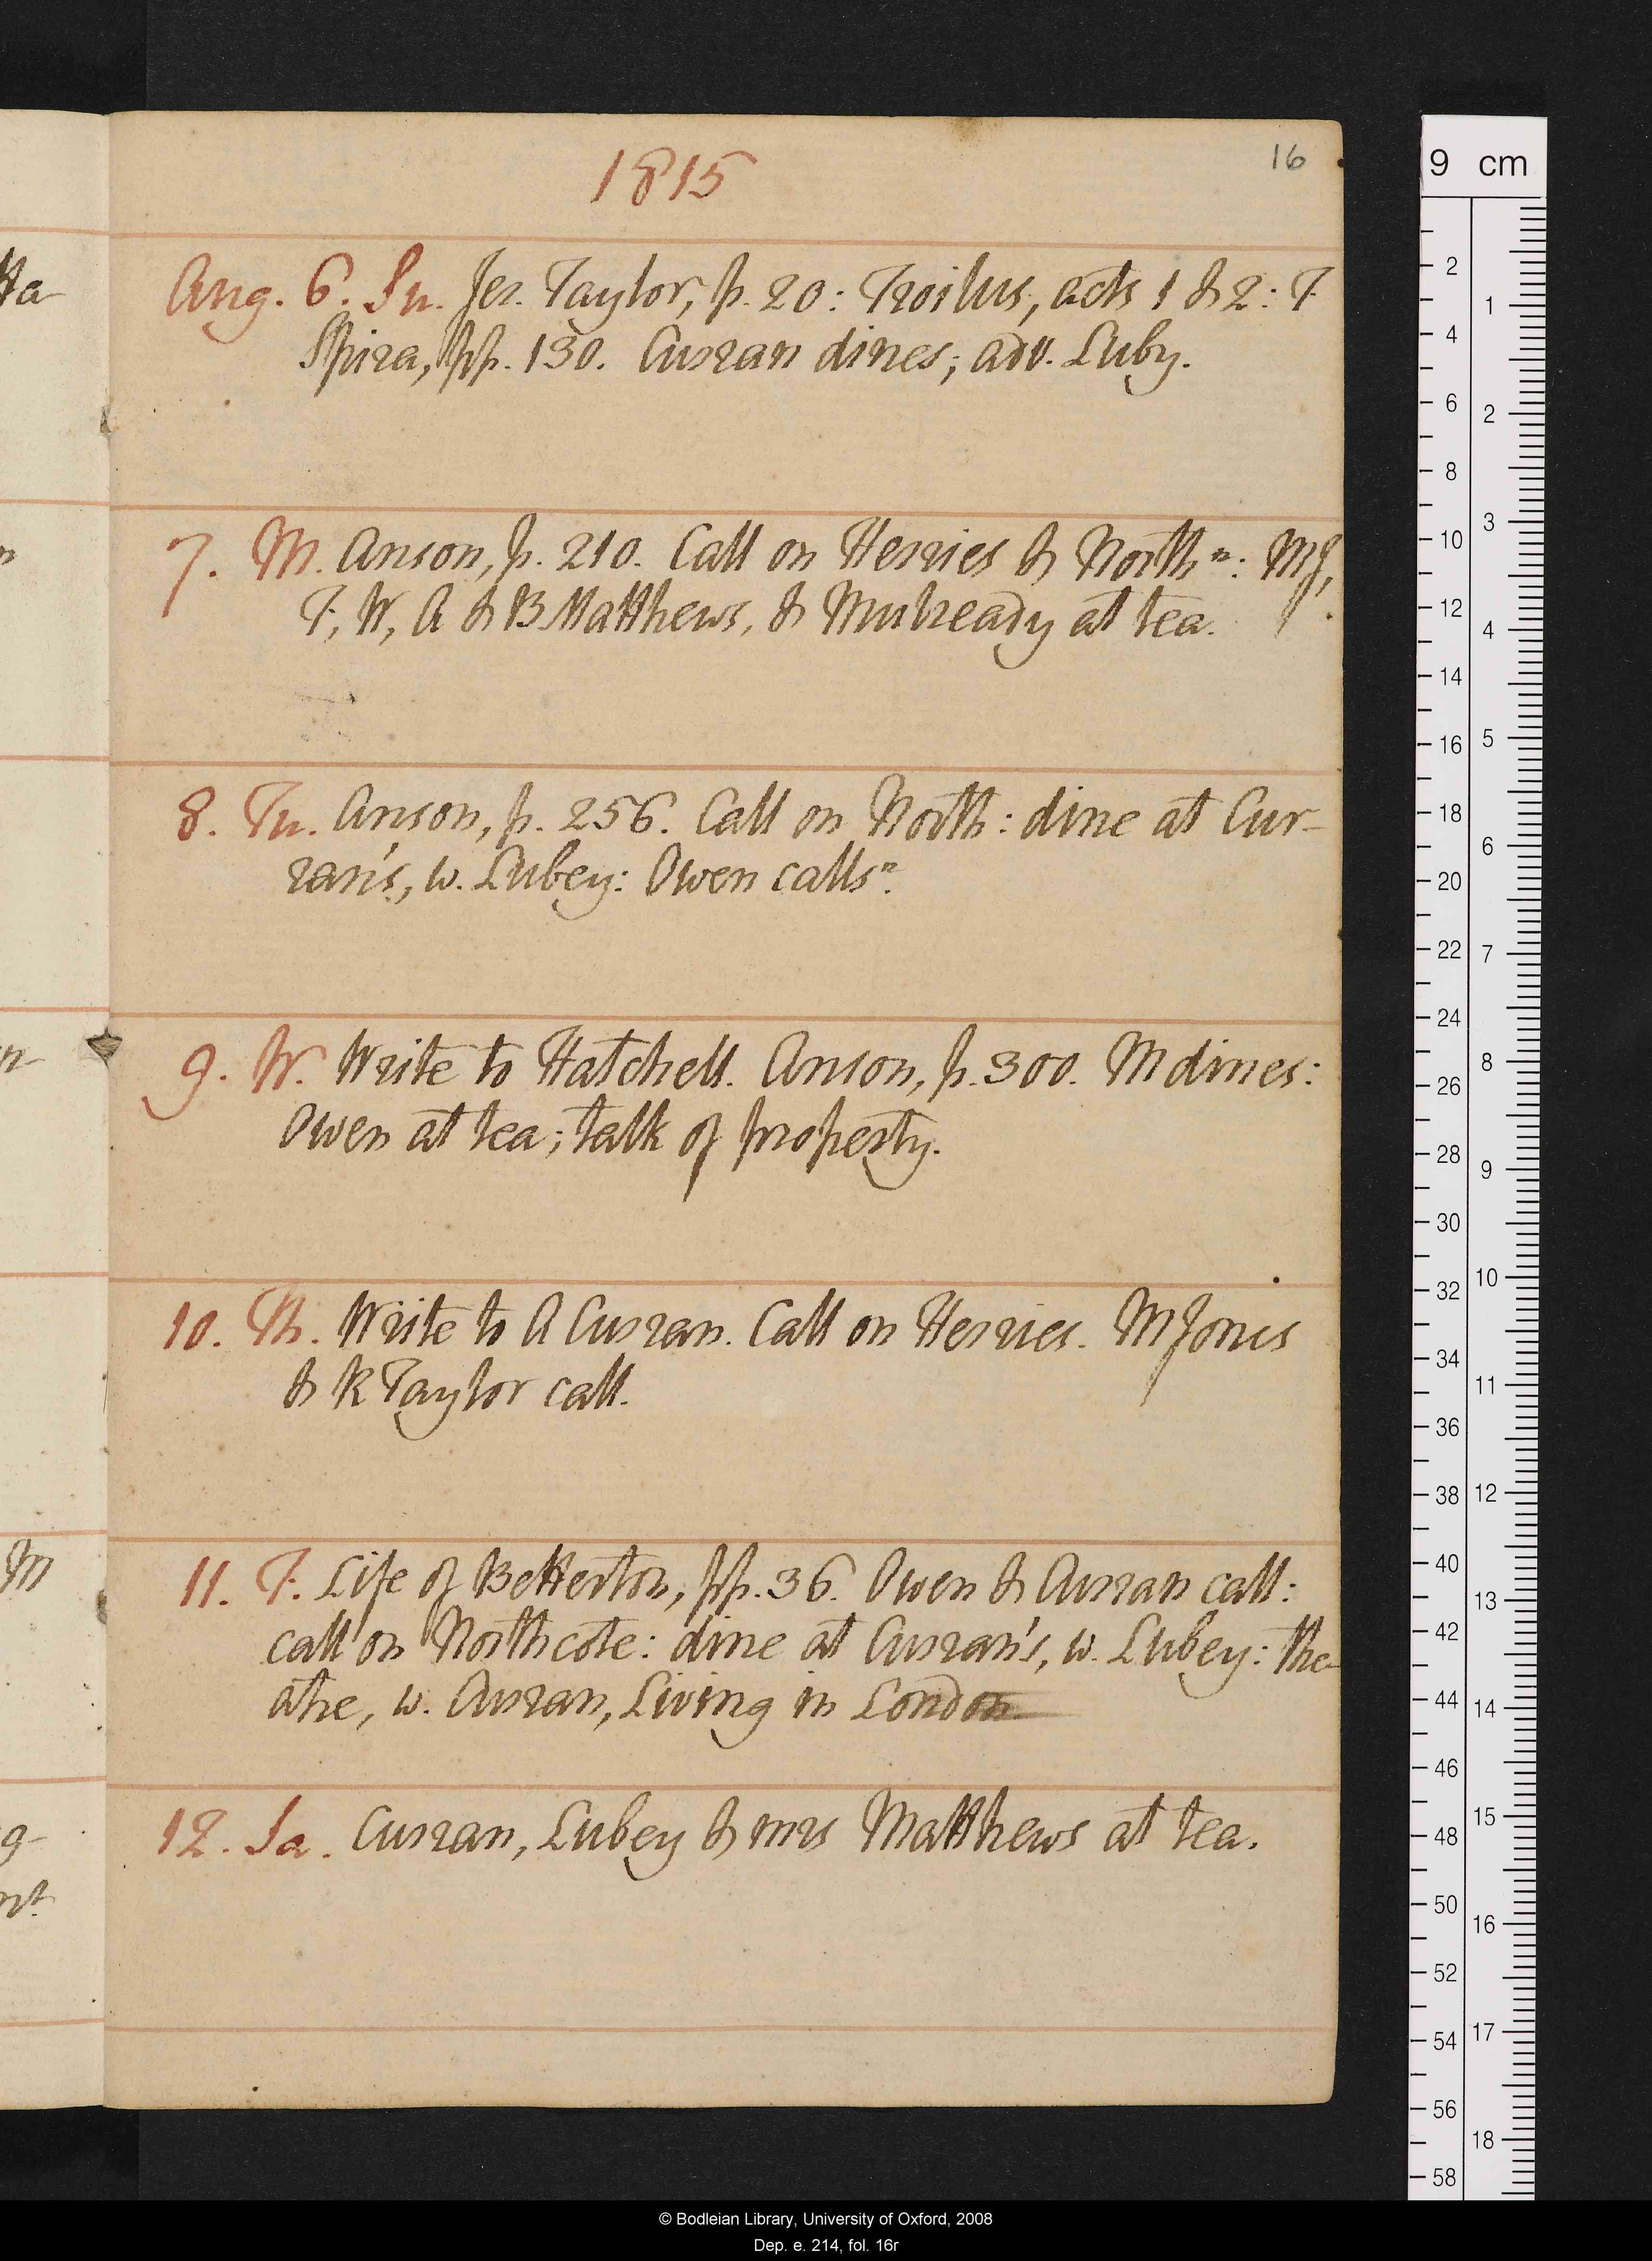 1815
16
Aug. 6. Su. Jer. Taylor, p. 20: Troilus, acts 1 & 2: F
Spira, pp. 130. Curran dines; adv. Luby.
7. M. Anson, p. 210. Call on Herries & North n: MJ,
F, W, A & B Matthews, & Mulready at tea.
8. Tu. Anson, p. 256. Call on North: dine at Cur-
ran's, w. Lubey: Owen calls n.
9. W. Write to Hatchell. Anson, p. 300. M dines:
Owen at tea; talk of property.
10. Th. Write to A Curran. Call on Herries. M Jones
& R Taylor call.
11. F. Life of Betterton, pp. 36. Owen & Curran call:
call on Northcote: dine at Curran's, w. Lubey: the-
atre, w. Curran, Living in London
12. Sa. Curran, Lubey & mrs Matthews at tea.
9 cm
2
4
6
8
10
12
14
16
18
20
22
24
26
28
30
32
34
36
38
40
42
44
46
48
50
52
54
56
58
1
2
3
4
5
6
7
8
9
10
11
12
13
14
15
16
17
18
© Bodleian Library, University of Oxford, 2008
Dep. e. 214, fol. 16r